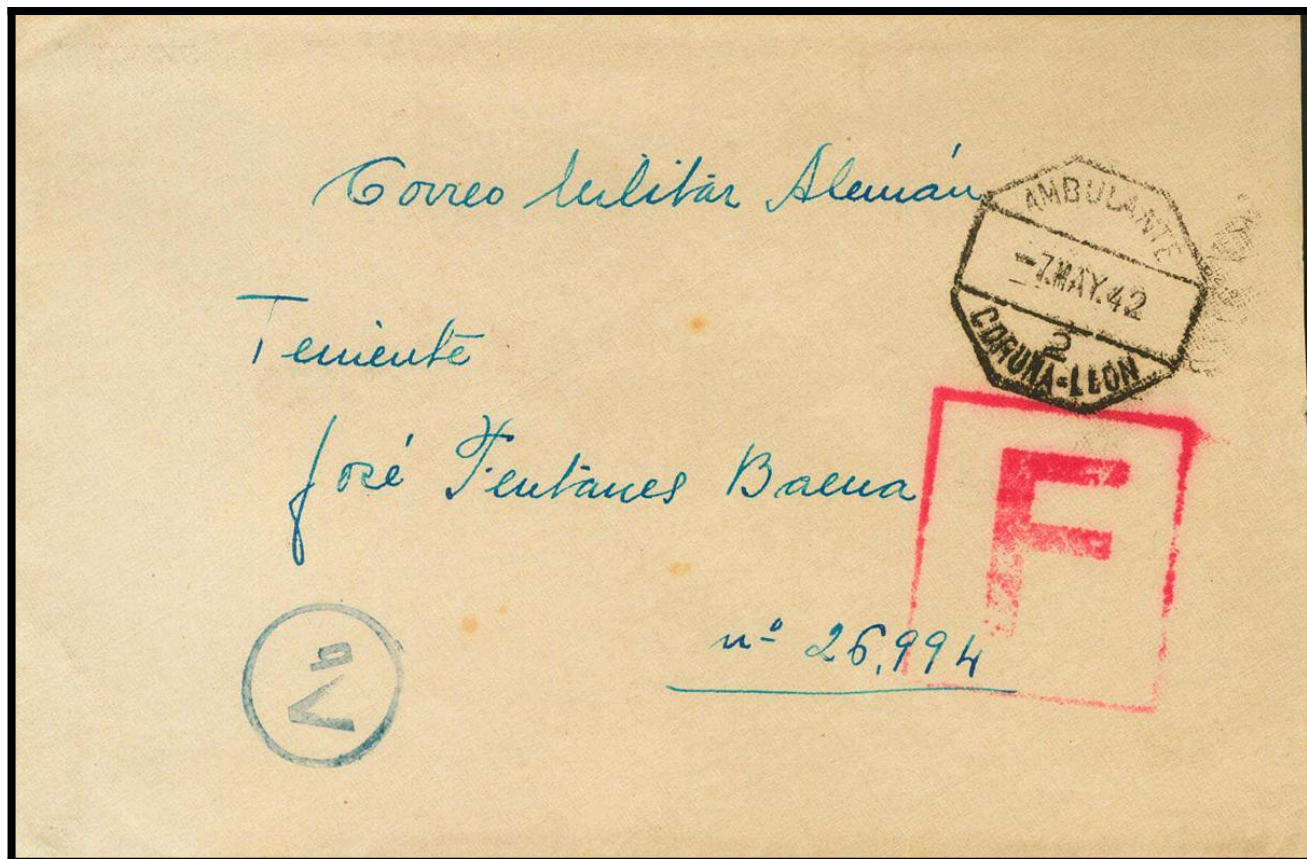 Correo Militar Alemán
AMBULANTE
-7.MAY.42
2
CORUÑA-LEON
Teniente
José Fentanes Baena
F
nº 26,994